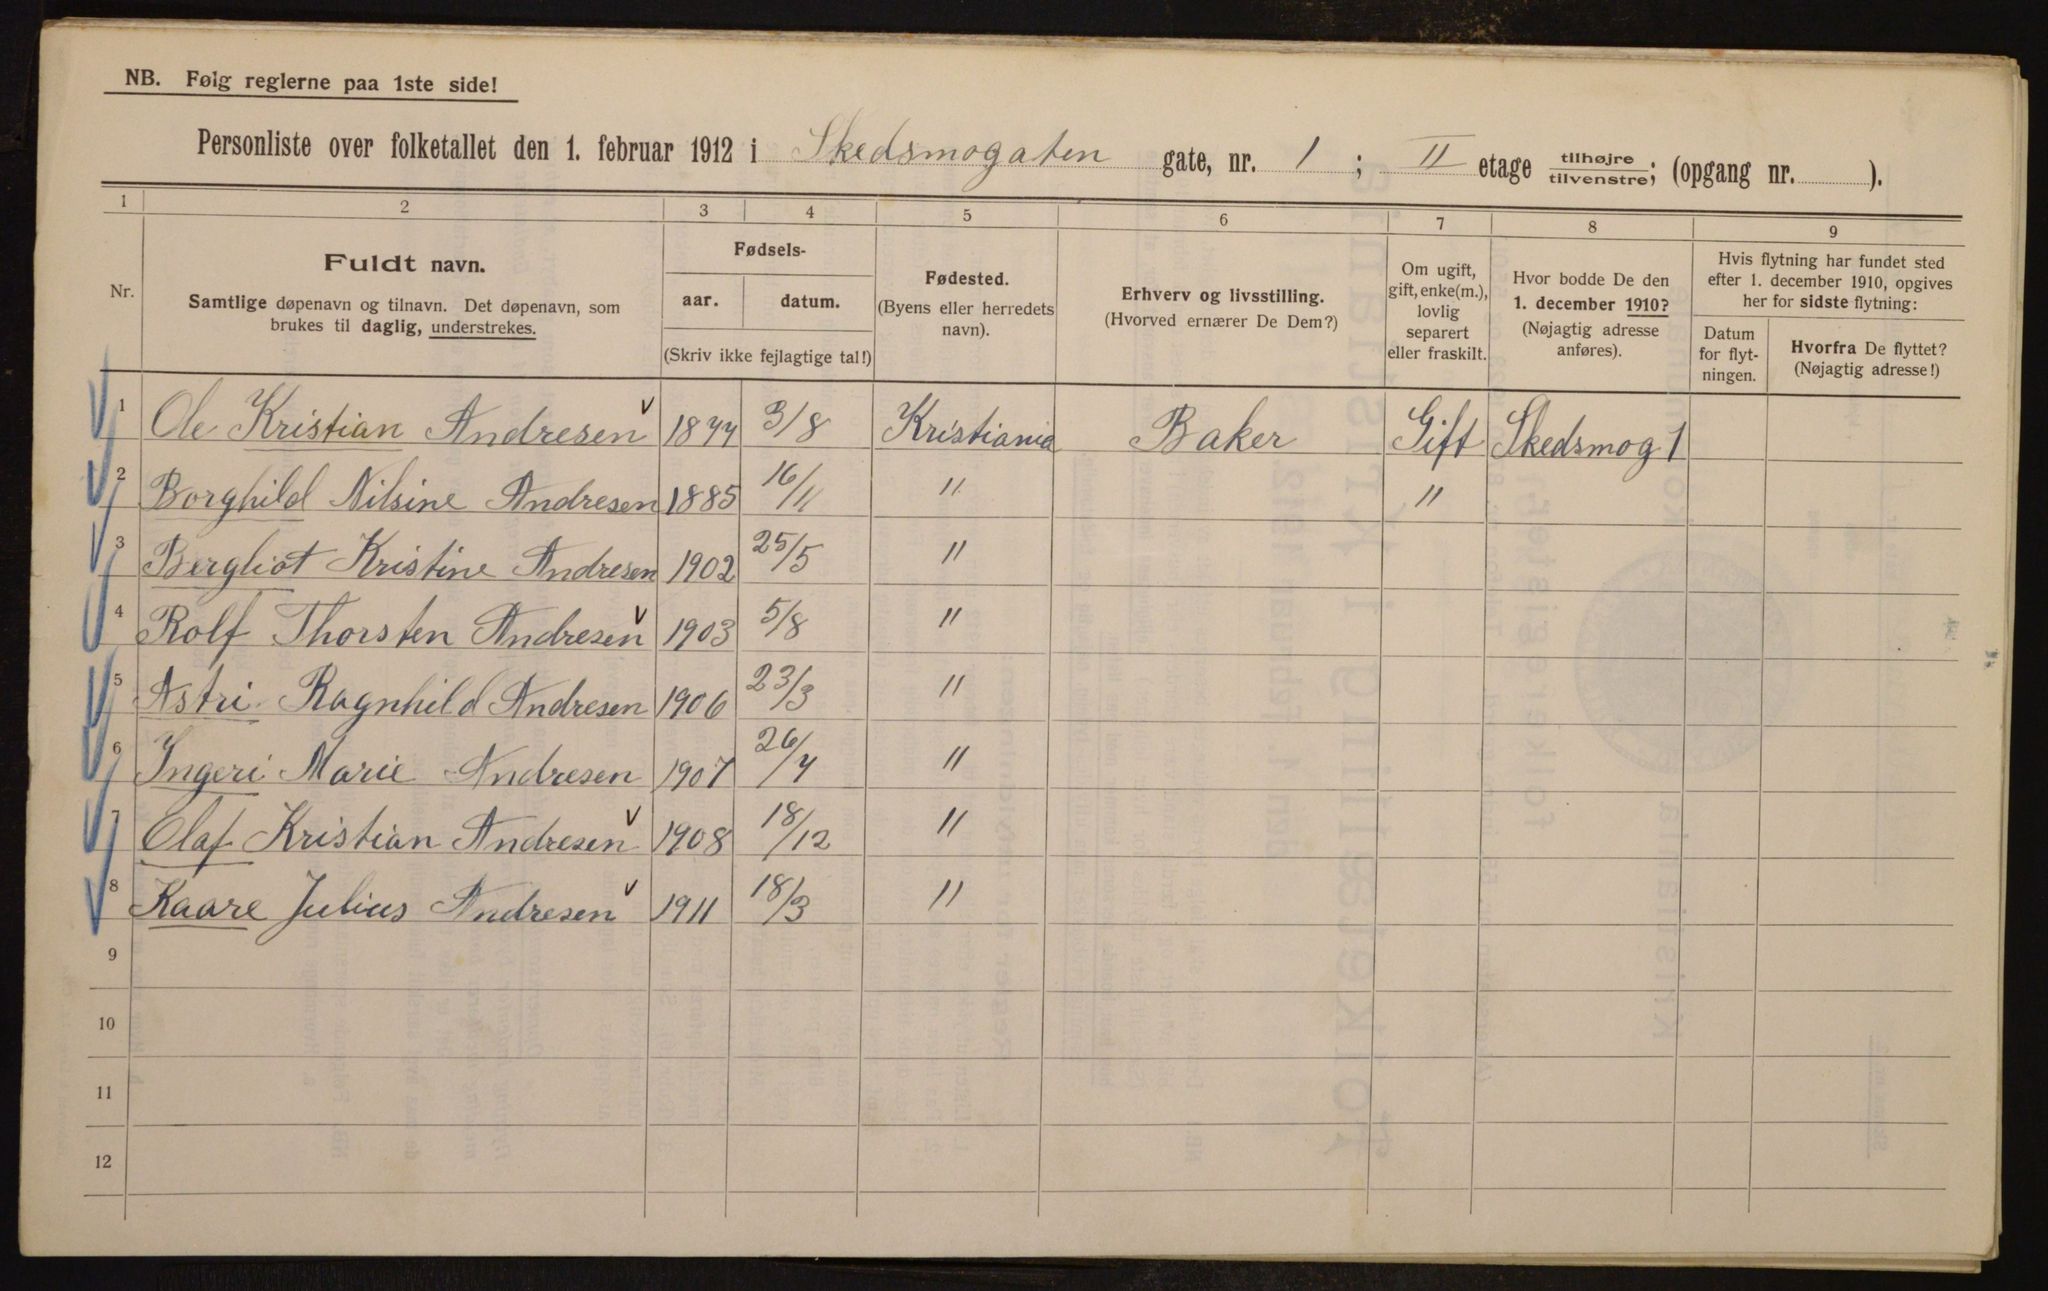 NB. Følg reglerne paa 1ste side!
Personliste over folketallet den 1. februar 1912 i Skedsmogaten gate, nr. 1 ; II etage tilhøjre/tilvenstre; (opgang nr. ).
1 2 3 4 5 6 7 8 9
Nr.
Fuldt navn.
Samtlige døpenavn og tilnavn. Det døpenavn, som
brukes til daglig, understrekes.
Fødsels-
aar. datum.
(Skriv ikke fejlagtige tal!)
Fødested.
(Byens eller herredets
navn).
Erhverv og livsstilling.
(Hvorved ernærer De Dem?)
Om ugift,
gift, enke(m.),
lovlig
separert
eller fraskilt.
Hvor bodde De den
1. december 1910?
(Nøjagtig adresse
anføres).
Hvis flytning har fundet sted
efter 1. december 1910, opgives
her for sidste flytning:
Datum
for flyt-
ningen.
Hvorfra De flyttet?
(Nøjagtig adresse!)
1 Ole Kristian Andresen 1877 3/8 Kristiania Baker Gift Skedsmog 1
2 Borghild Nilsine Andresen 1885 16/11 " "
3 Bergliot Kristine Andresen 1902 25/5 "
4 Rolf Thorsten Andresen 1903 5/8 "
5 Astri Ragnhild Andresen 1906 23/3 "
6 Ingeri Marie Andresen 1907 26/7 "
7 Olaf Kristian Andresen 1908 18/12 "
8 Kaare Julius Andresen 1911 18/3 "
9
10
11
12